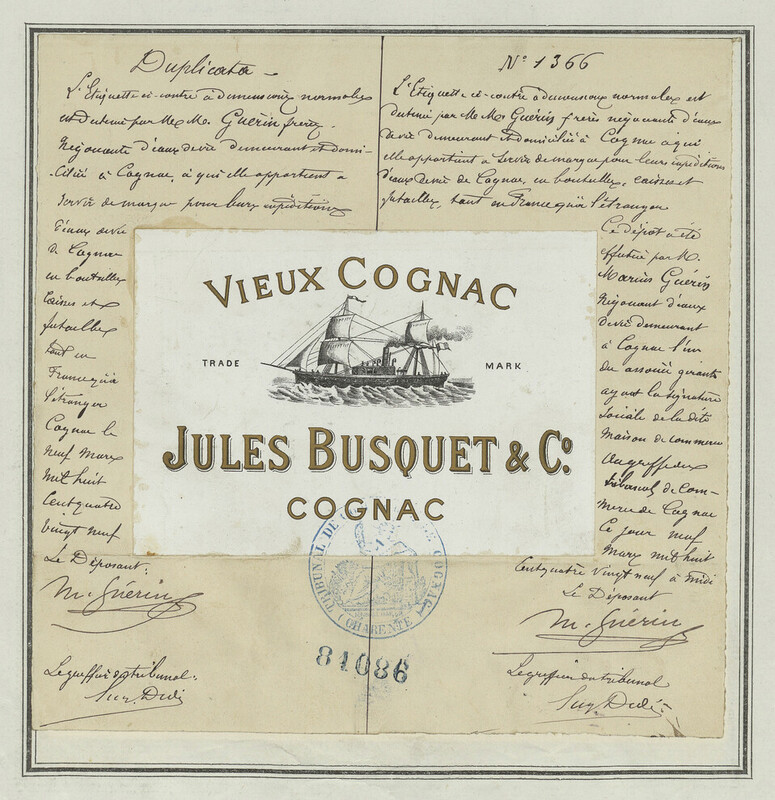 Duplicata
L'Etiquette ci-contre à dimensions normales
est détenue par Mr M. Guérin frères,
Négociants d'eaux de vie demeurant et domi-
ciliés à Cognac, à qui elle appartient &
servir de marque pour leurs expéditions
d'eaux de vie
de Cognac
en bouteilles
caisses et
futailles
tant en
France qu'à
l'étranger
Cognac le
neuf Mars
mil huit
cent quatre
vingt neuf
Le Déposant:
M. Guérin
Le greffier du tribunal:
N° 1366
L'Etiquette ci-contre à dimensions normales est
détenue par Mr M. Guérin frères négociants d'eaux
de vie demeurant et domiciliés à Cognac à qui
elle appartient à servir de marque pour leurs expéditions
d'eaux de vie de Cognac, en bouteilles, caisses et
futailles, tant en France qu'à l'étranger
Ce dépôt a été
effectué par M.
Marius Guérin
Négociant d'eaux
de vie demeurant
à Cognac l'un
des associés gérants
ayant la signature
sociale de la dite
Maison de commerce
Au greffe du
tribunal de Com-
merce de Cognac
Ce jour neuf
Mars mil huit
cent quatre vingt neuf à midi
Le Déposant
M. Guérin
Le greffier du tribunal
VIEUX COGNAC
TRADE MARK
JULES BUSQUET & Co.
COGNAC
TRIBUNAL DE COGNAC
(CHARENTE)
81086